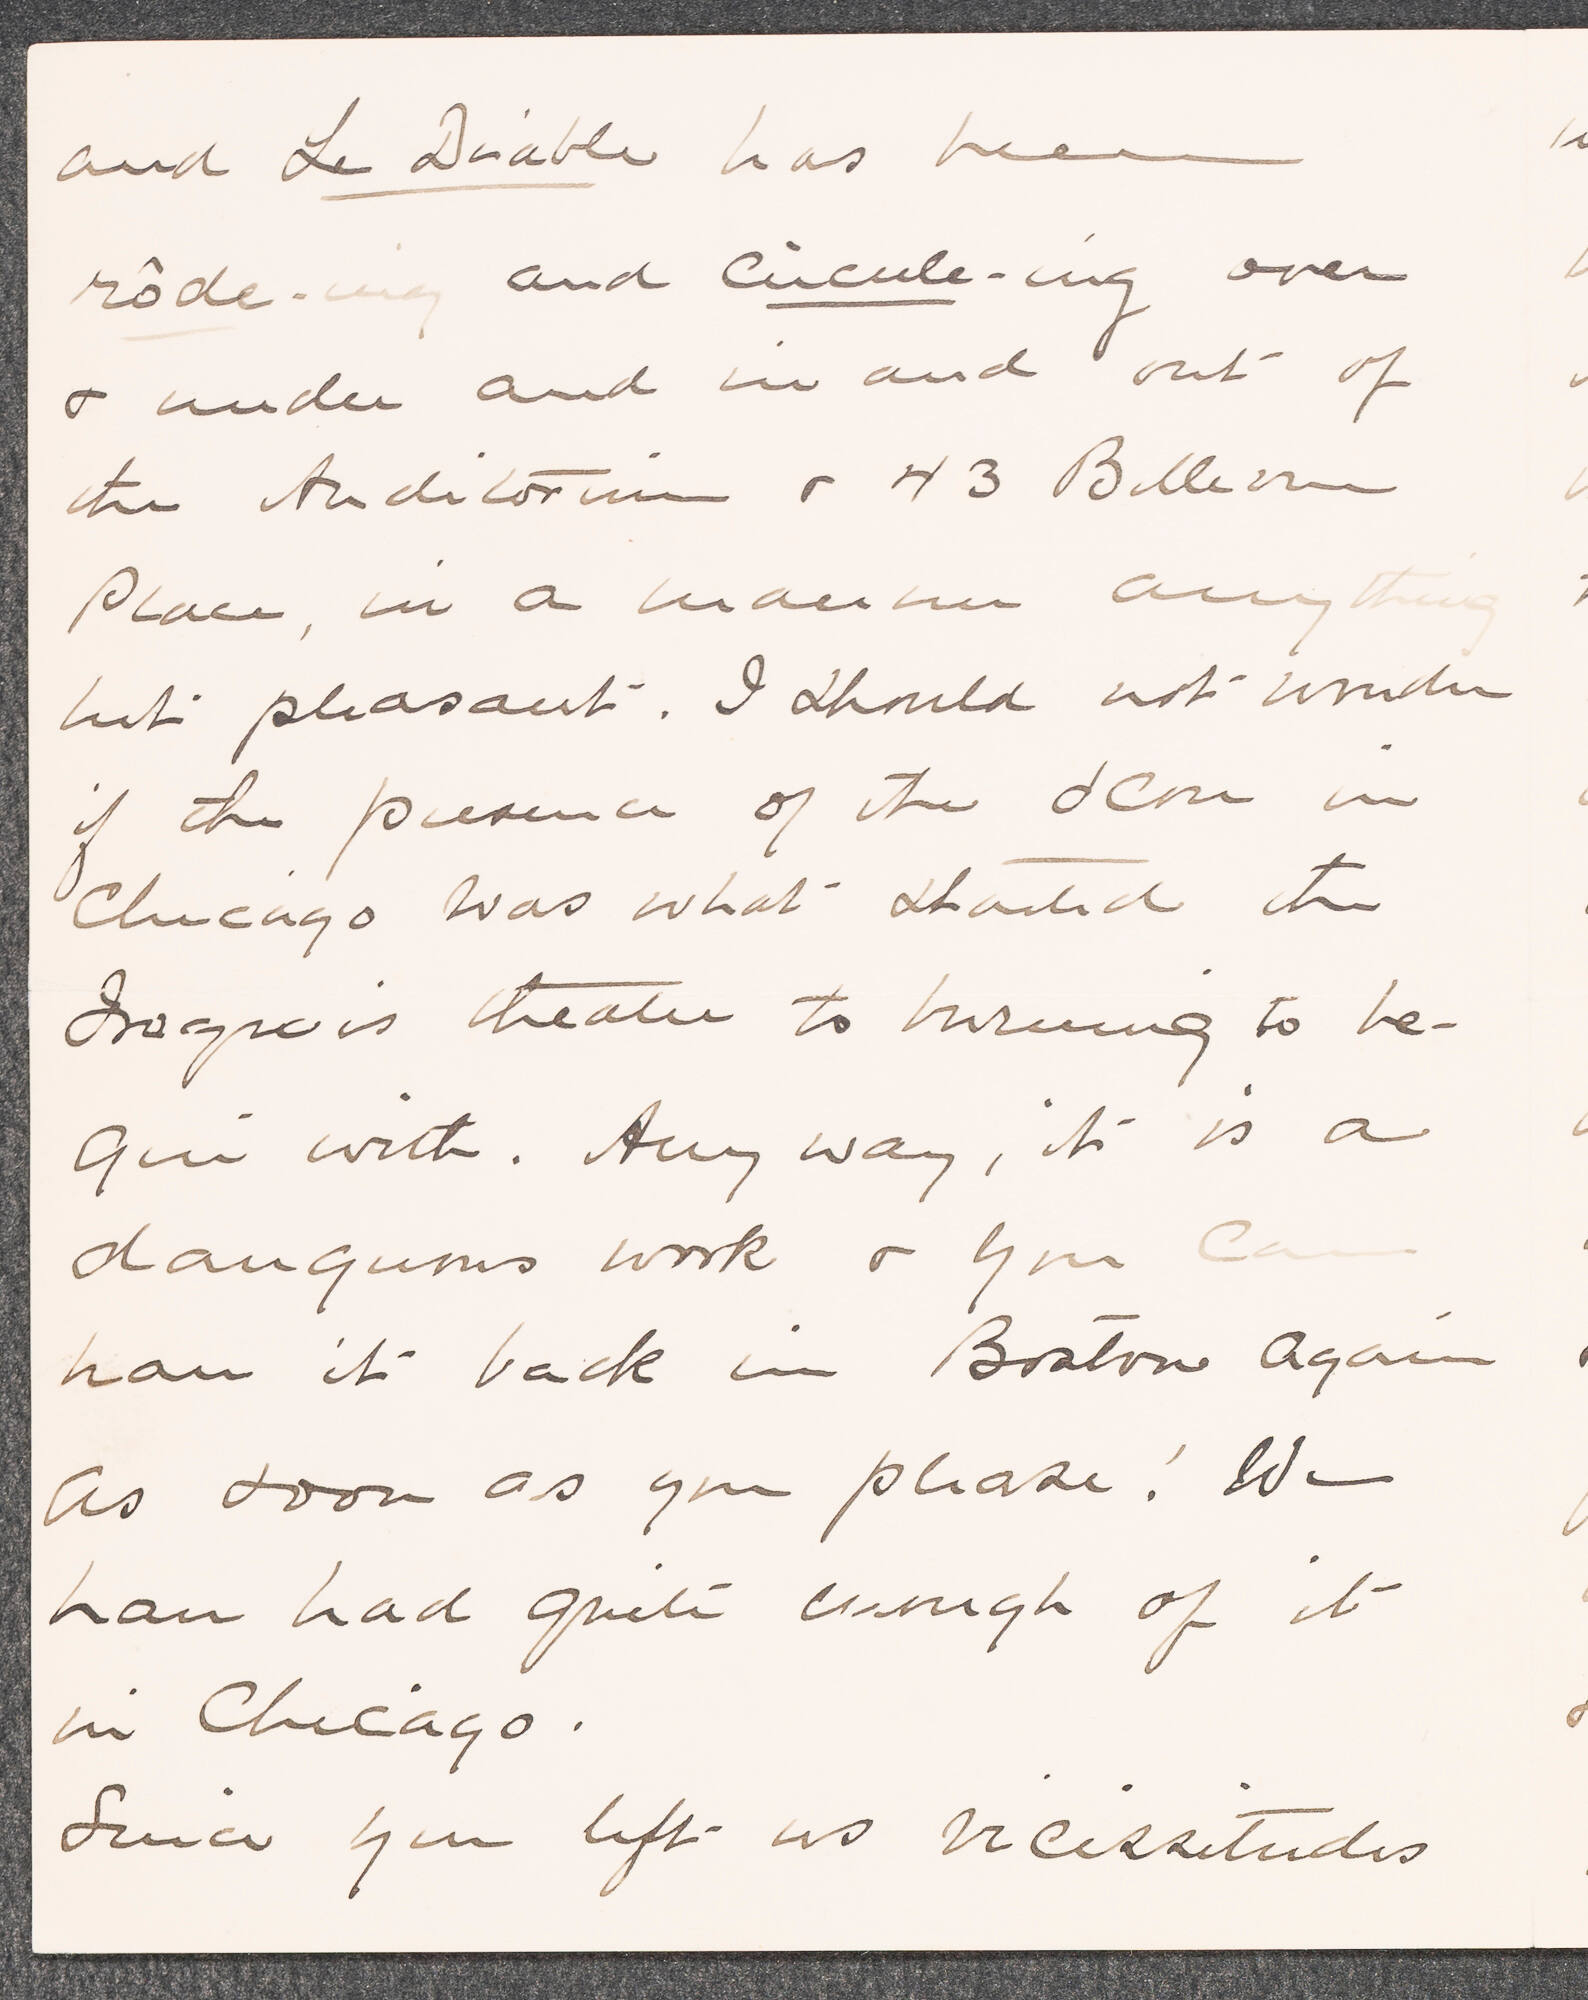 and Le Diable has been
rôde-ing and circule-ing over
& under and in and out of
the Auditorium & 43 Bellevue
Place, in a manner anything
but pleasant. I should not wonder
if the presence of the score in
Chicago was what started the
Iroquois theatre to burning to be-
gin with. Any way, it is a
dangerous work & you can
have it back in Boston again
as soon as you please! We
have had quite enough of it
in Chicago.
Since you left us vicissitudes